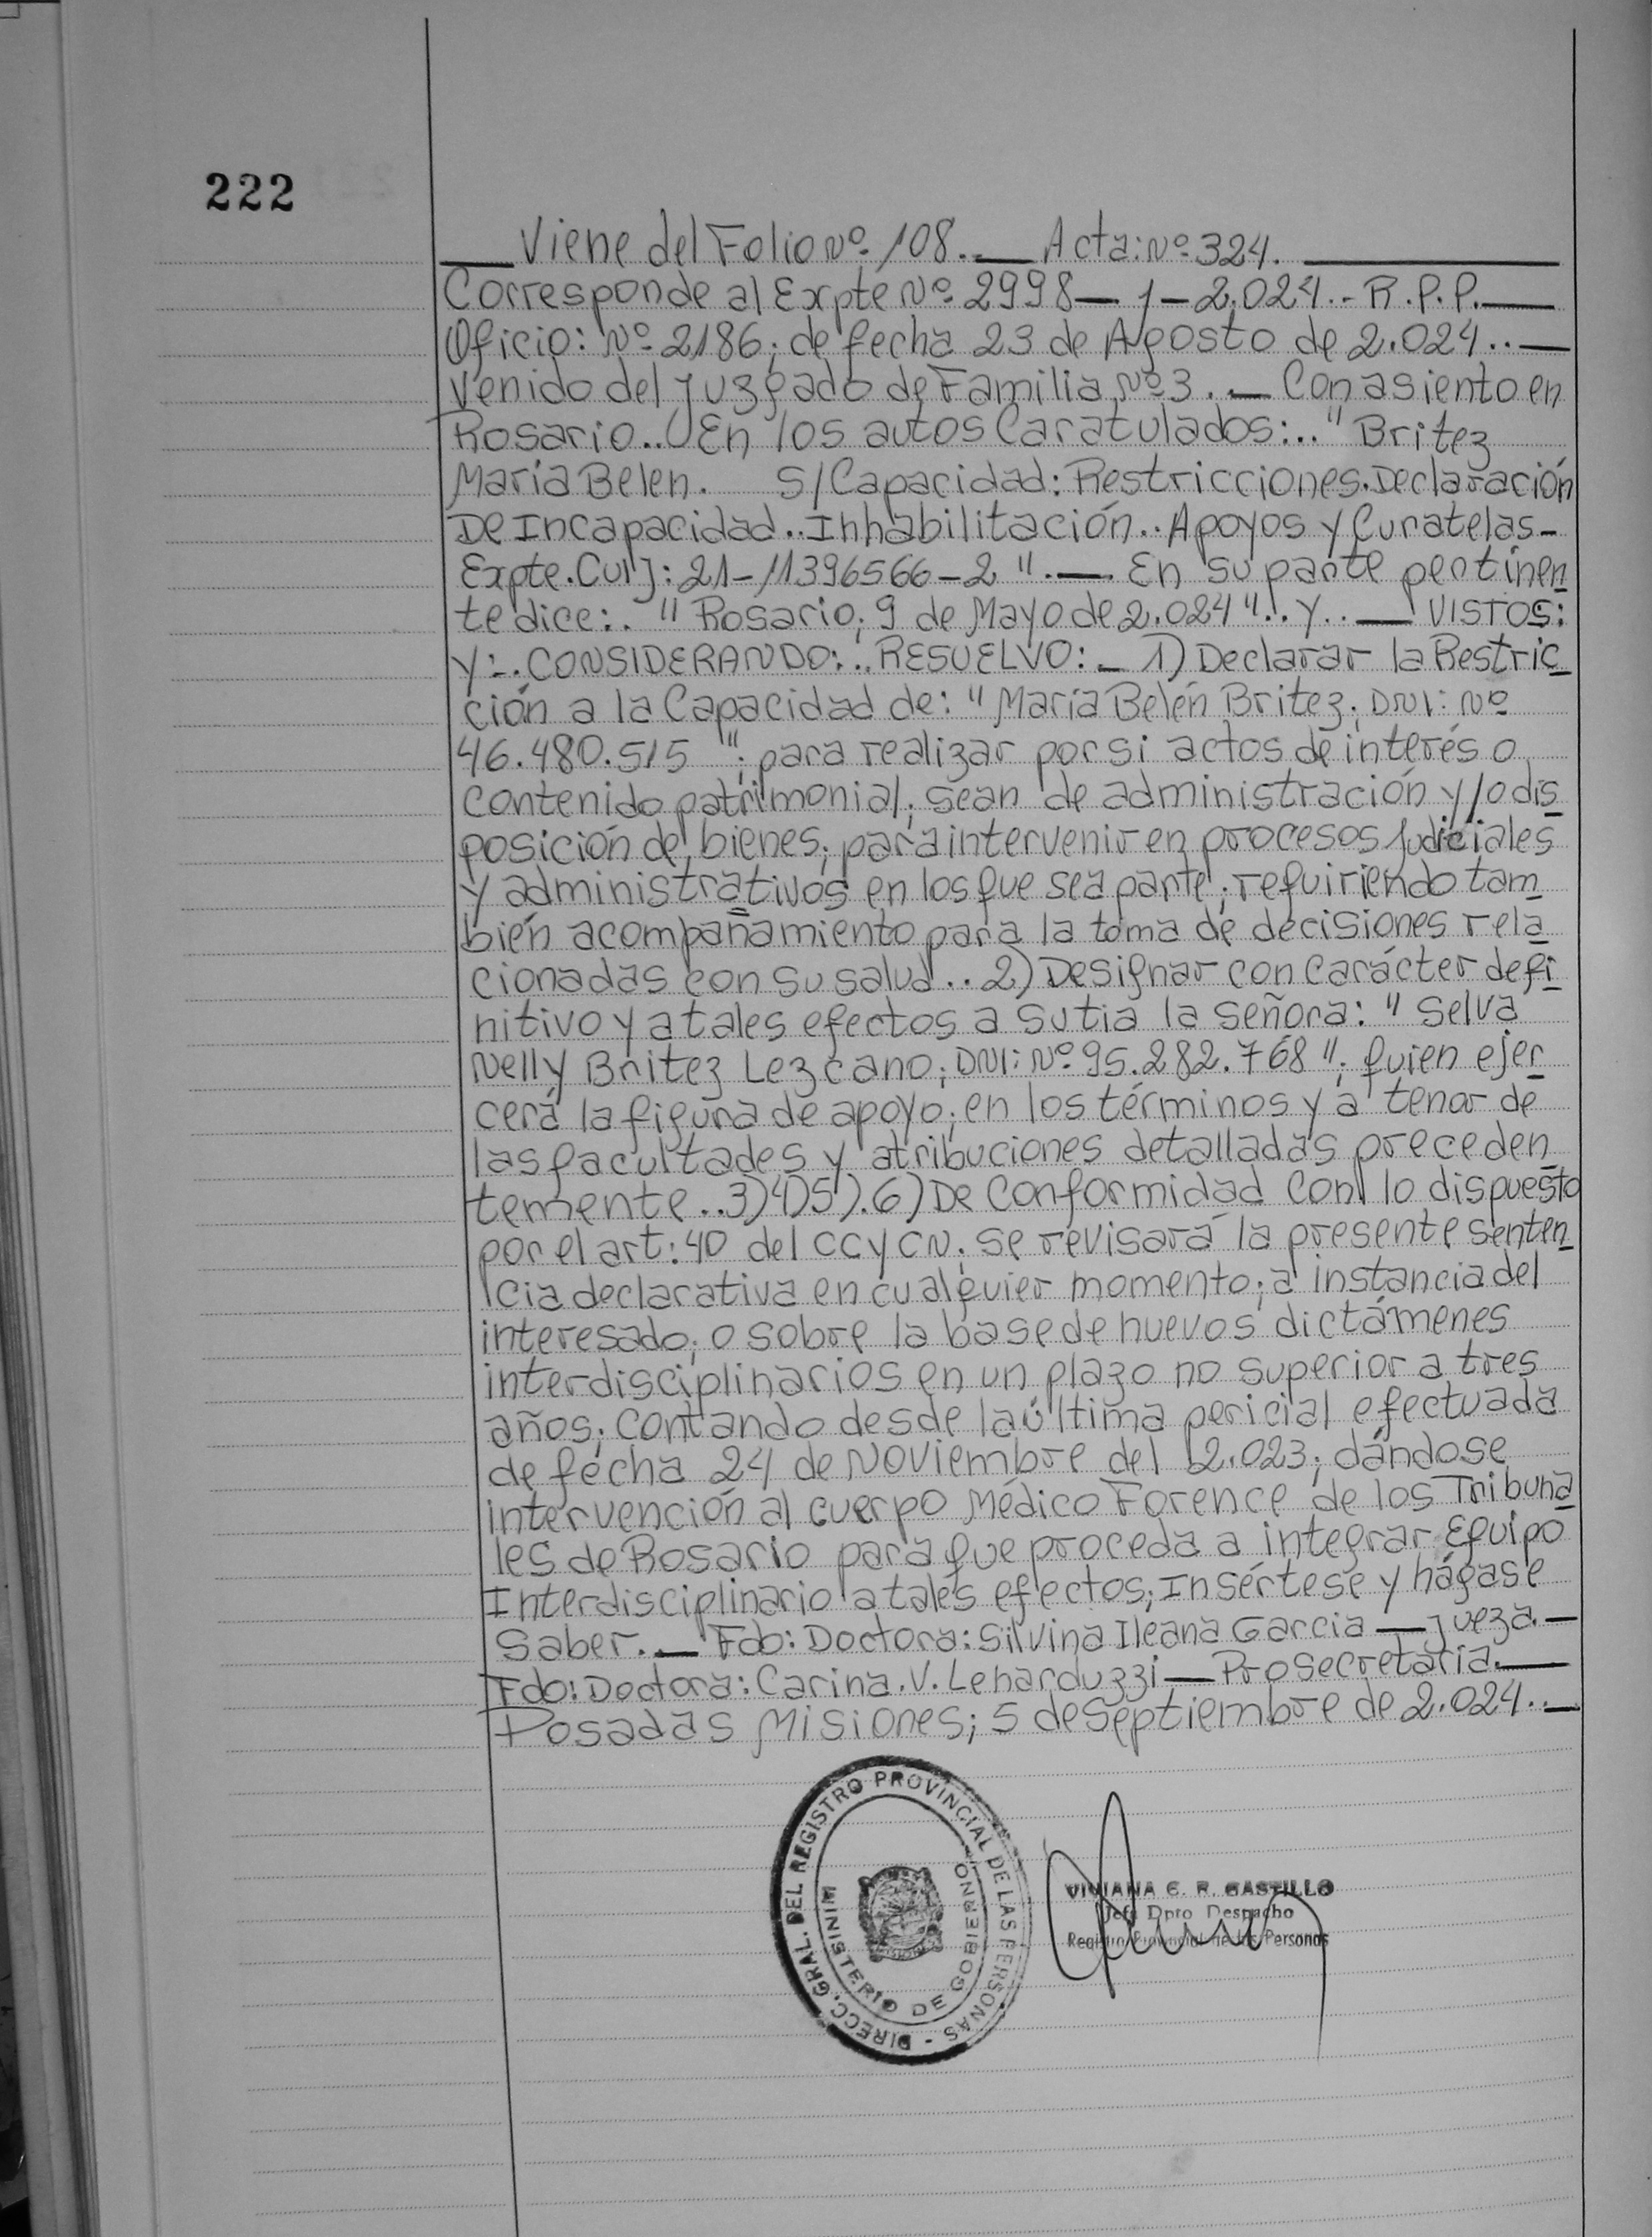 222
Viene del Folio Nº 108.— Acta: Nº 324.
Corresponde al Expte Nº 2998— 1— 2.024.- R.P.P.—
Oficio: Nº 2186; de fecha 23 de Agosto de 2.024..—
Venido del Juzgado de Familia Nº 3.— Con asiento en
Rosario.. En los autos Caratulados:.." Britez
María Belen. S/Capacidad: Restricciones. Declaración
De Incapacidad.. Inhabilitación.. Apoyos y Curatelas-
Expte. Cuij: 21-11396566-2 ".—. En su parte pertinen
te dice:. " Rosario; 9 de Mayo de 2.024 ".. y..— VISTOS:
Y:. CONSIDERANDO:.. RESUELVO:— 1) Declarar la Restric
ción a la Capacidad de: " María Belén Britez; DNI: Nº
46.480.515 "; para realizar por si actos de interés o
contenido patrimonial; sean de administración y/o dis
posición de bienes; para intervenir en procesos Judiciales
y administrativos en los que sea parte; requiriendo tam
bién acompañamiento para la toma de decisiones rela
cionadas con su salud.. 2) Designar con Carácter defi
nitivo y a tales efectos a su tia la señora: " Selva
Nelly Britez Lezcano; DNI: Nº 95.282.768 "; quien ejer
cerá la figura de apoyo; en los términos y a tenor de
las facultades y atribuciones detalladas preceden
temente.. 3)4)5).6) De Conformidad Con lo dispuesto
por el art: 40 del CCyCN; se revisará la presente senten
cia declarativa en cualquier momento; a instancia del
interesado; o sobre la base de nuevos dictámenes
interdisciplinarios en un plazo no superior a tres
años; Contando desde la última pericial efectuada
de fecha 24 de Noviembre del 2.023; dándose
intervención al cuerpo Médico Forence de los Tribuna
les de Rosario para que proceda a integrar Equipo
Interdisciplinario a tales efectos; Insértese y hágase
Saber.— Fdo: Doctora: Silvina Ileana Garcia — Jueza.—
Fdo: Doctora: Carina. V. Lenarduzzi — Prosecretaria.—
Posadas Misiones; 5 de Septiembre de 2.024..—
DIRECC. GRAL. DEL REGISTRO PROVINCIAL DE LAS PERSONAS -
MINISTERIO DE GOBIERNO
VIVIANA G. R. CASTILLO
Jefe Dpto Despacho
Registro Provincial de las Personas